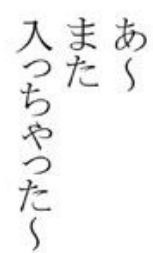 あ〜
また
入っちゃった〜